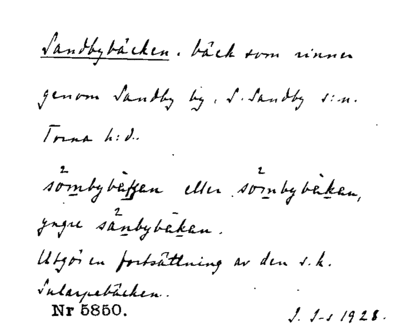 Sandbybäcken. bäck som rinner
genom Sandby by, S. Sandby s:n.
Torna h:d.
sòmbybäkkan eller sòmbybäkan,
yngre sànbybäkan.
Utgör en fortsättning av den s.k.
Sularpebäcken.
Nr 5850.
I. I-s 1928.